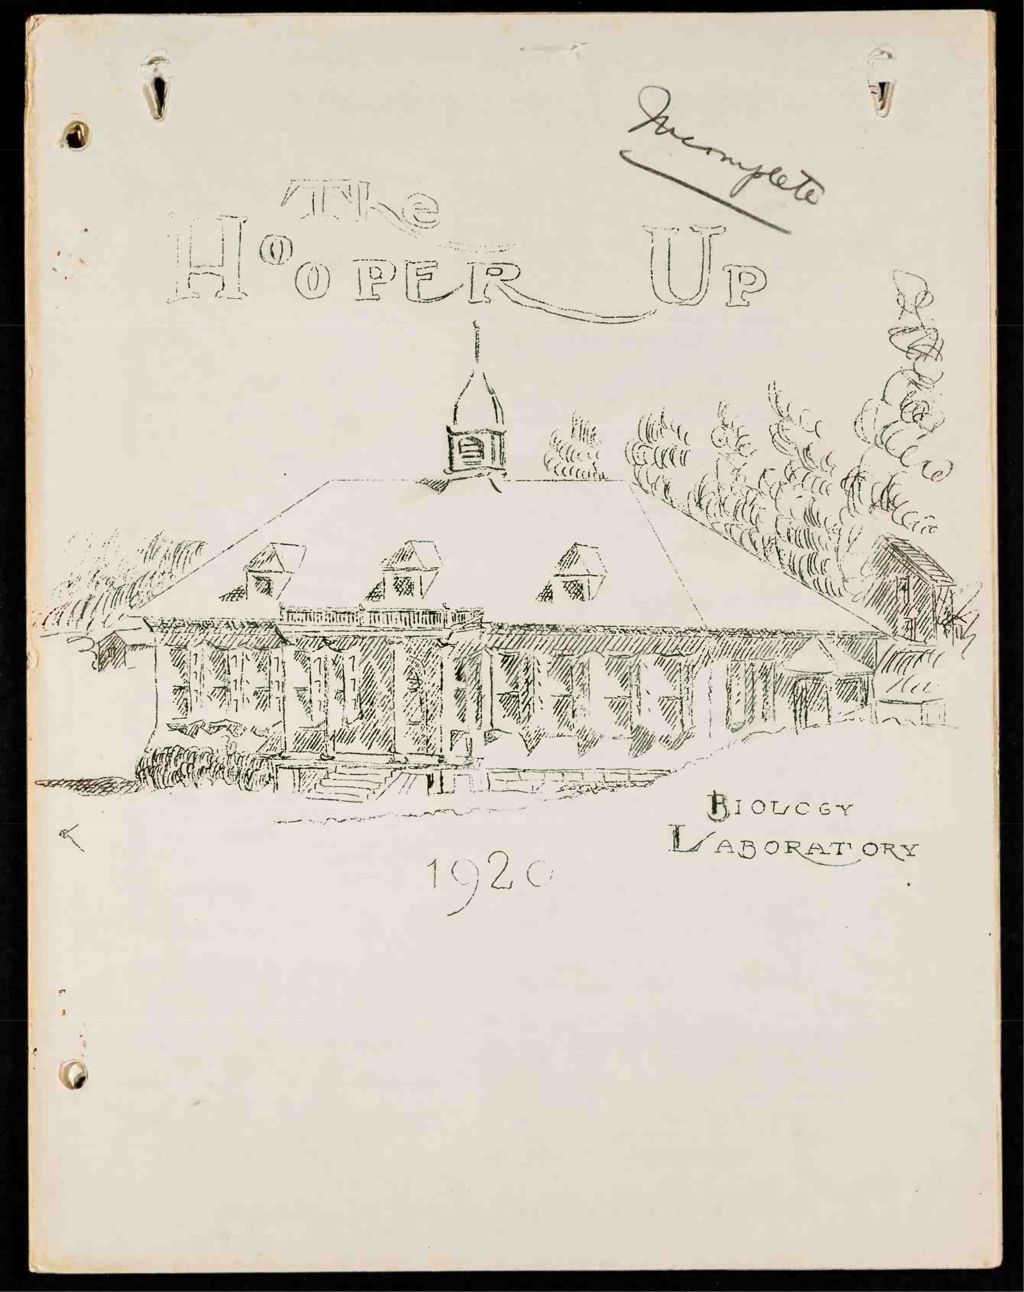 Incomplete
The
Hooper Up
Biology
Laboratory
1920